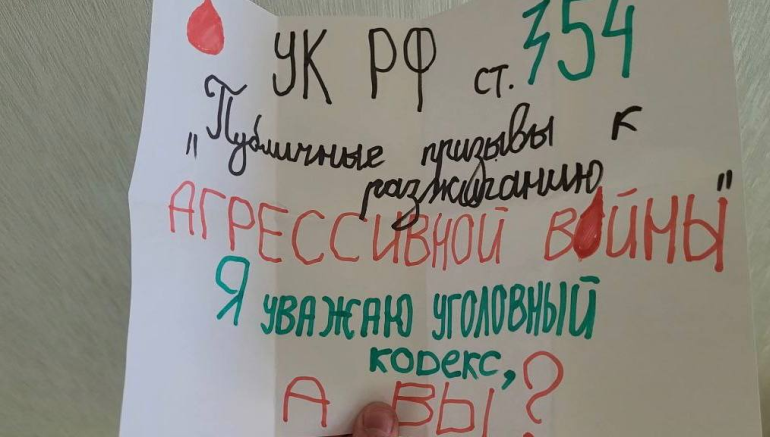 УК РФ ст. 354
"Публичные призывы к
разжиганию
АГРЕССИВНОЙ ВОЙНЫ"
Я УВАЖАЮ УГОЛОВНЫЙ
кодекс,
А ВЫ?